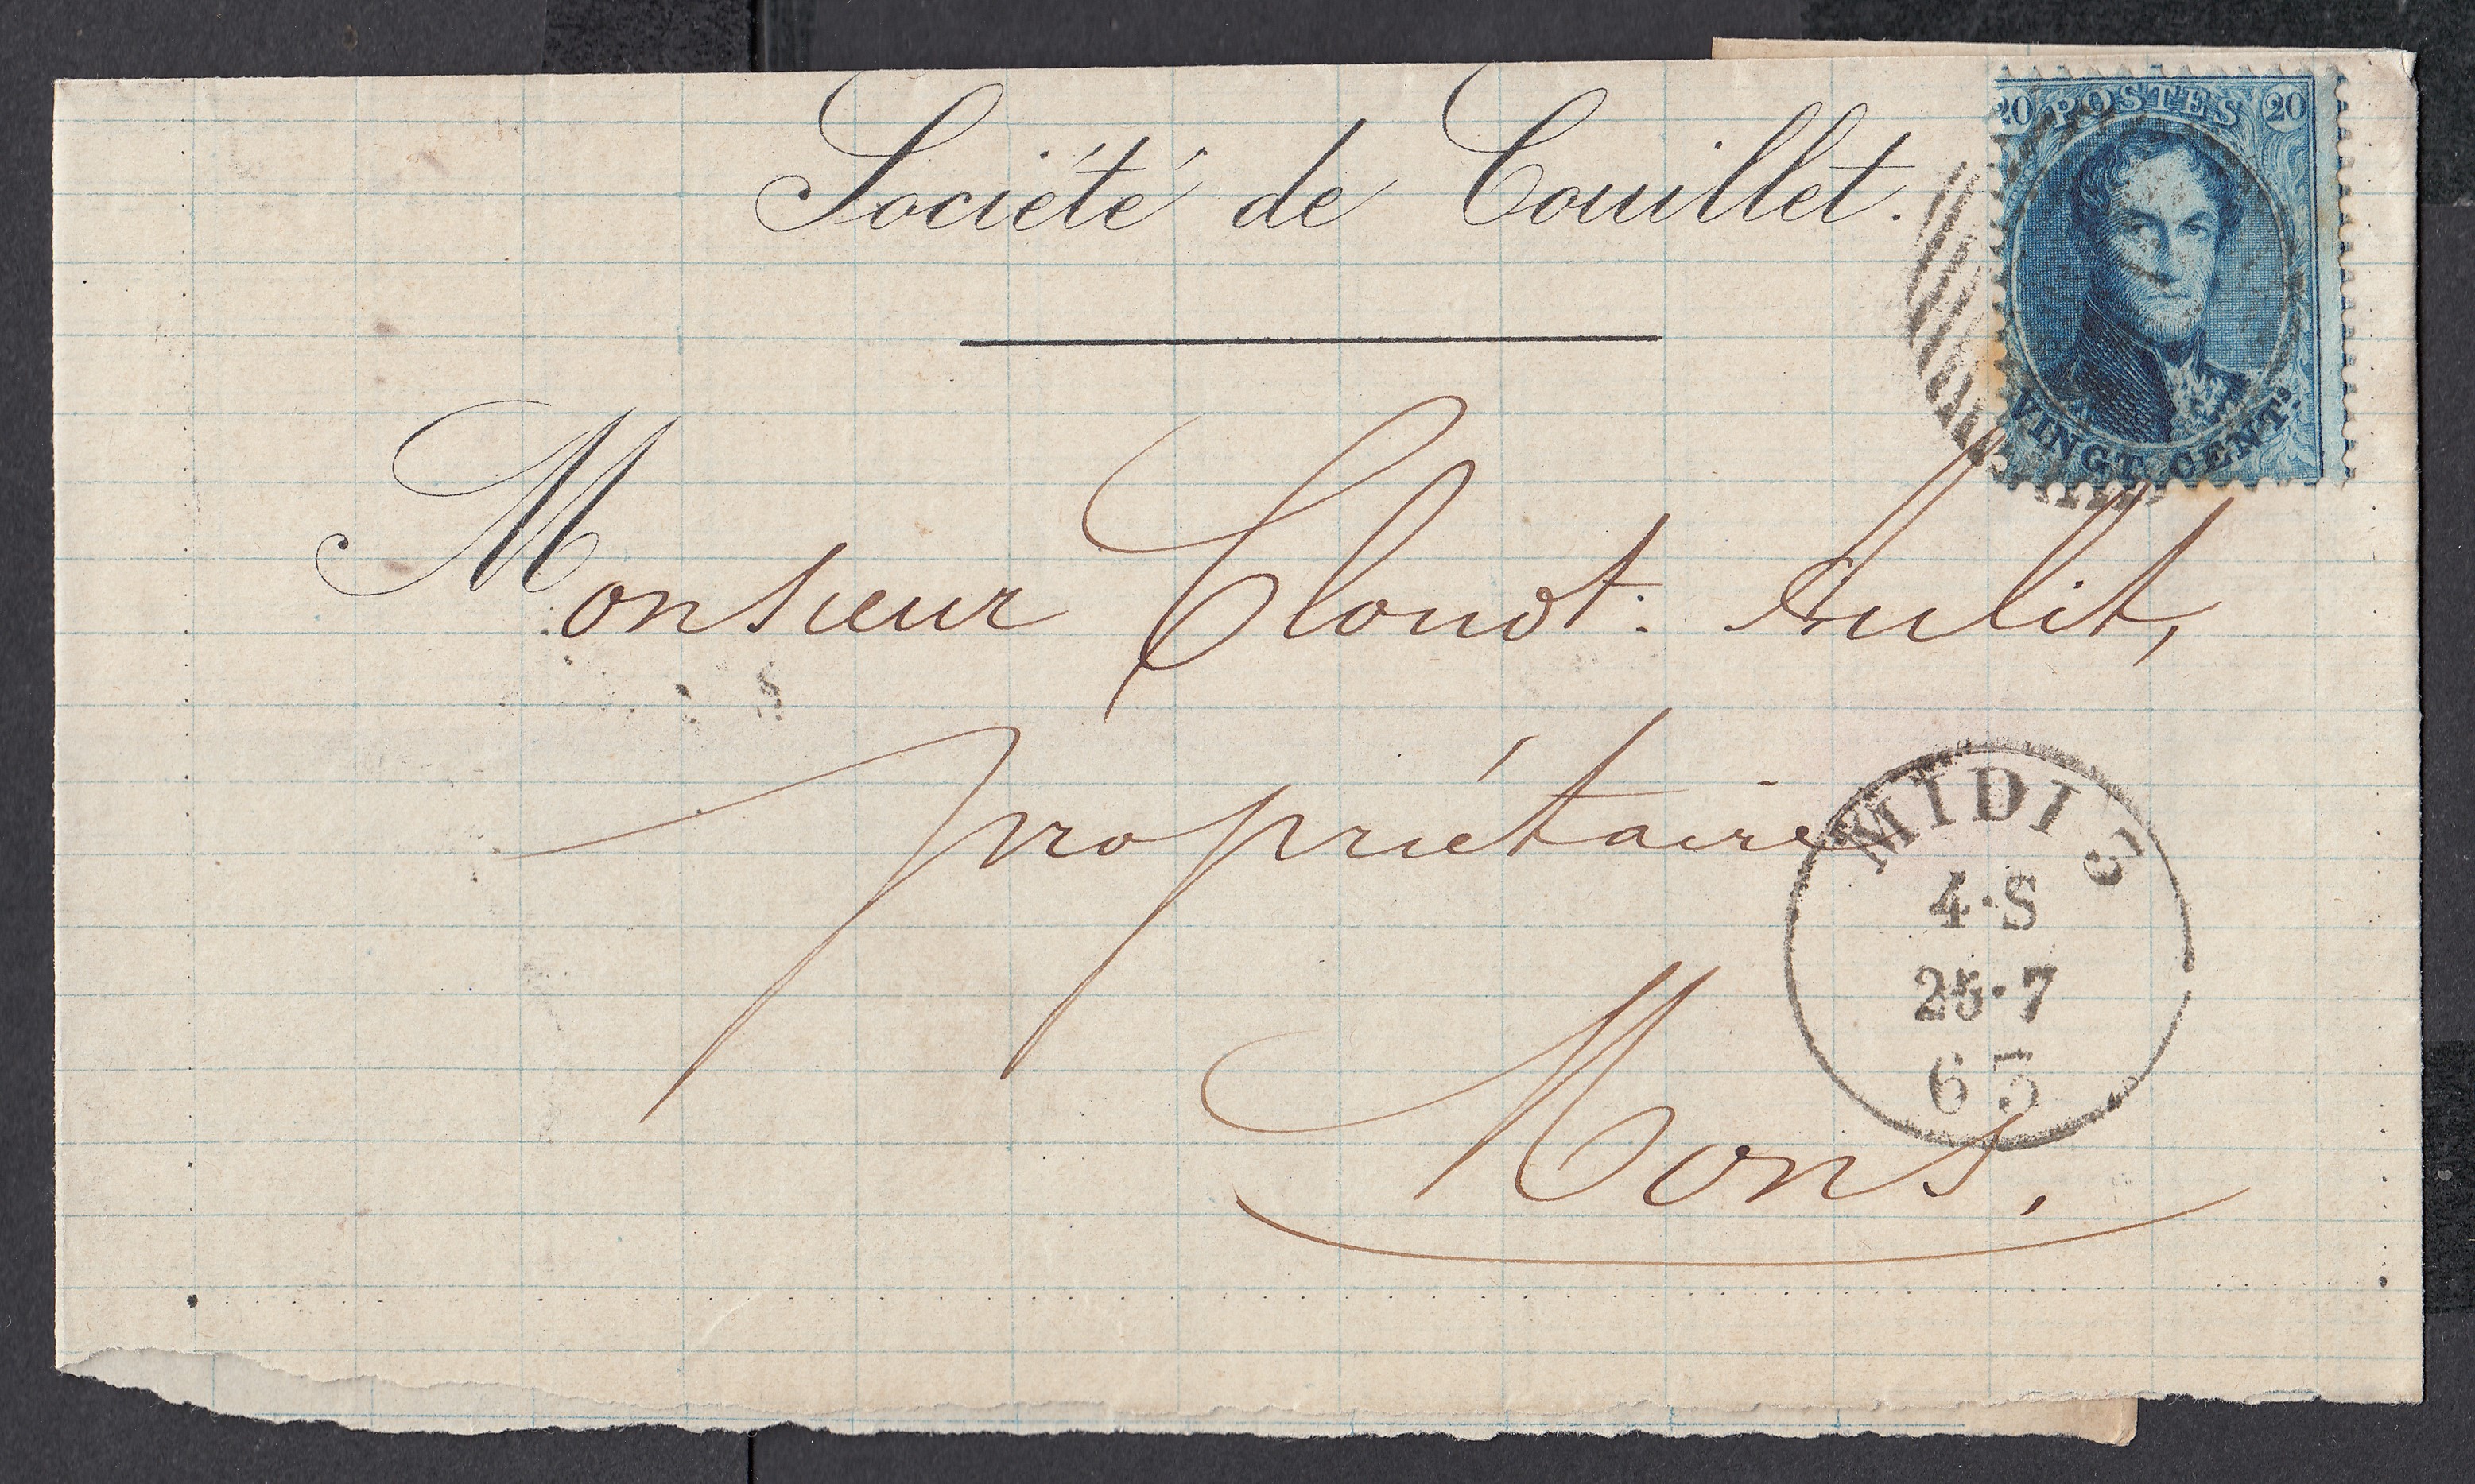 Société de Couillet.
20 POSTES 20
VINGT CENT.
Monsieur Aulit,
propriétaire
Mons.
MIDI 3
4·S
25·7
63